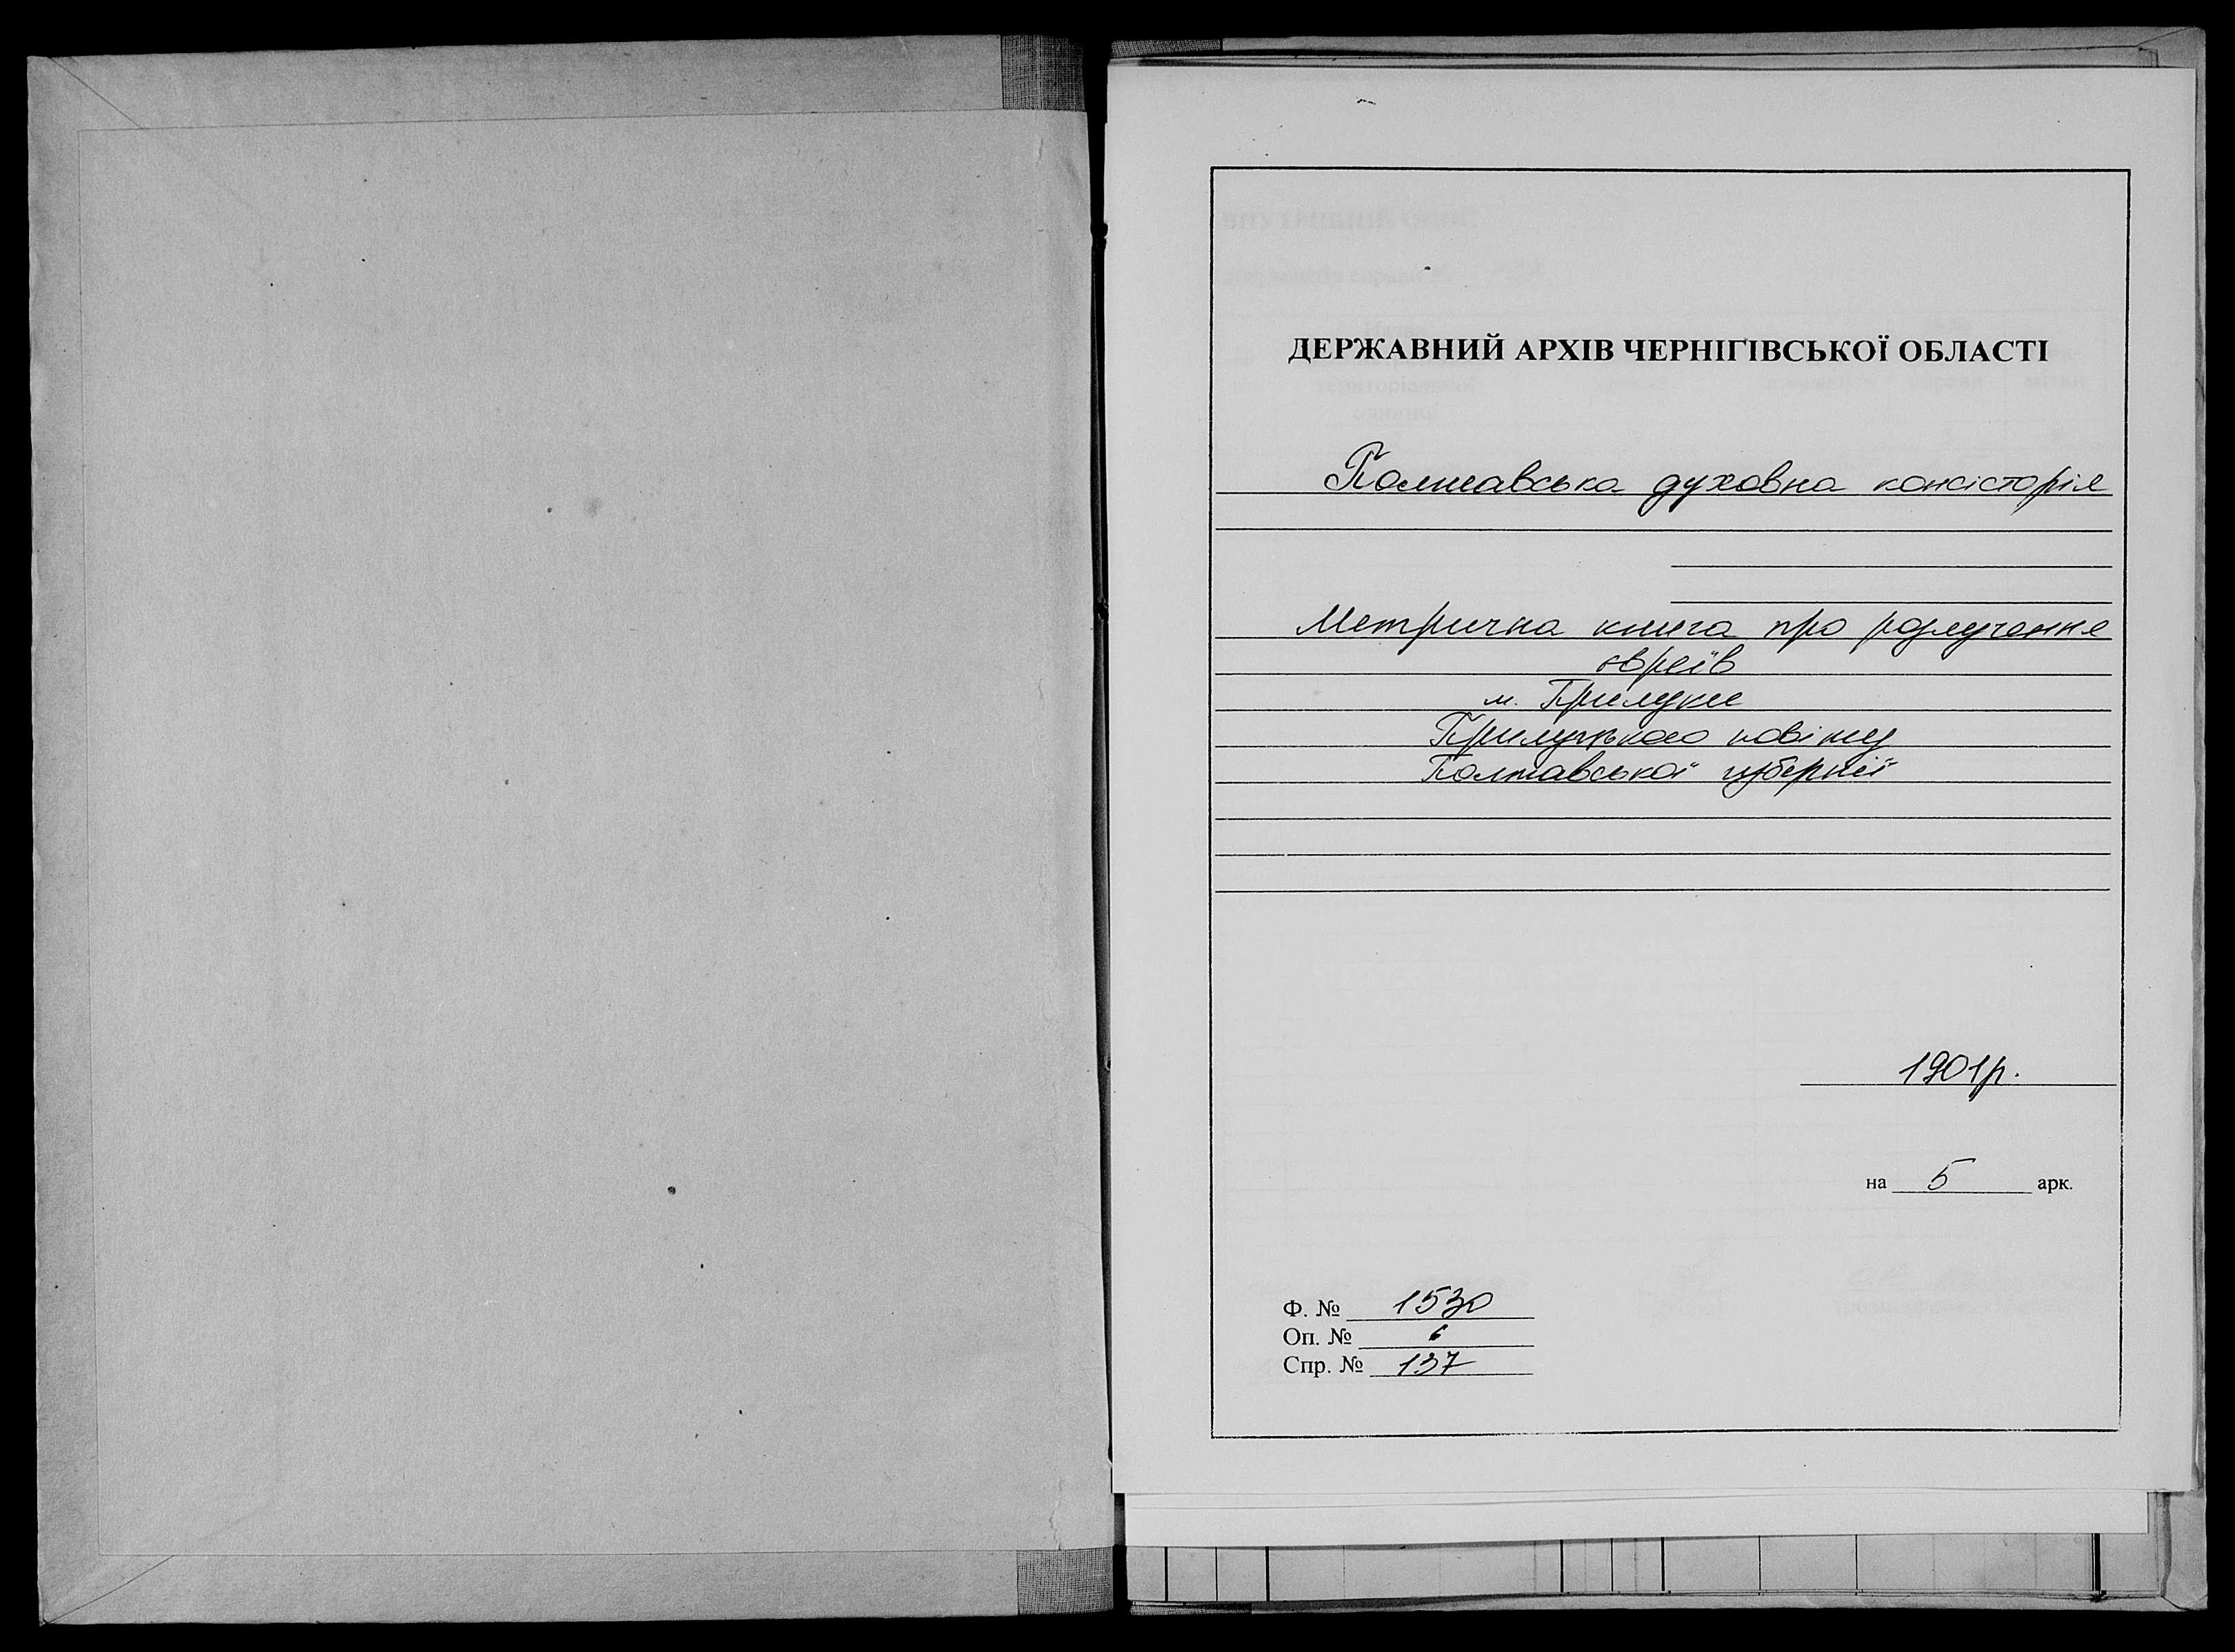 ДЕРЖАВНИЙ АРХІВ ЧЕРНІГІВСЬКОЇ ОБЛАСТІ
Полтавська духовна консісторія
Метрична книга про розлучення
євреїв
м. Прилуки
Прилуцького повіту
Полтавської губернії
1901р.
на 5 арк.
Ф. № 1530
Оп. № 6
Спр. № 137